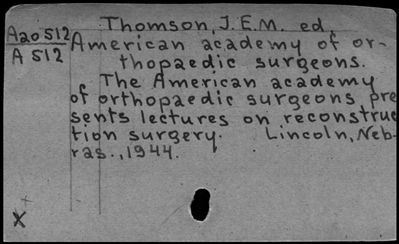 Thomson, J.E.M. ed
A20512
A 512
American academy of or-
thopaedic surgeons.
The American academy
of orthopaedic surgeons pre
sents lectures on reconstruc
tion surgery. Lincoln, Neb-
ras., 1944.
X